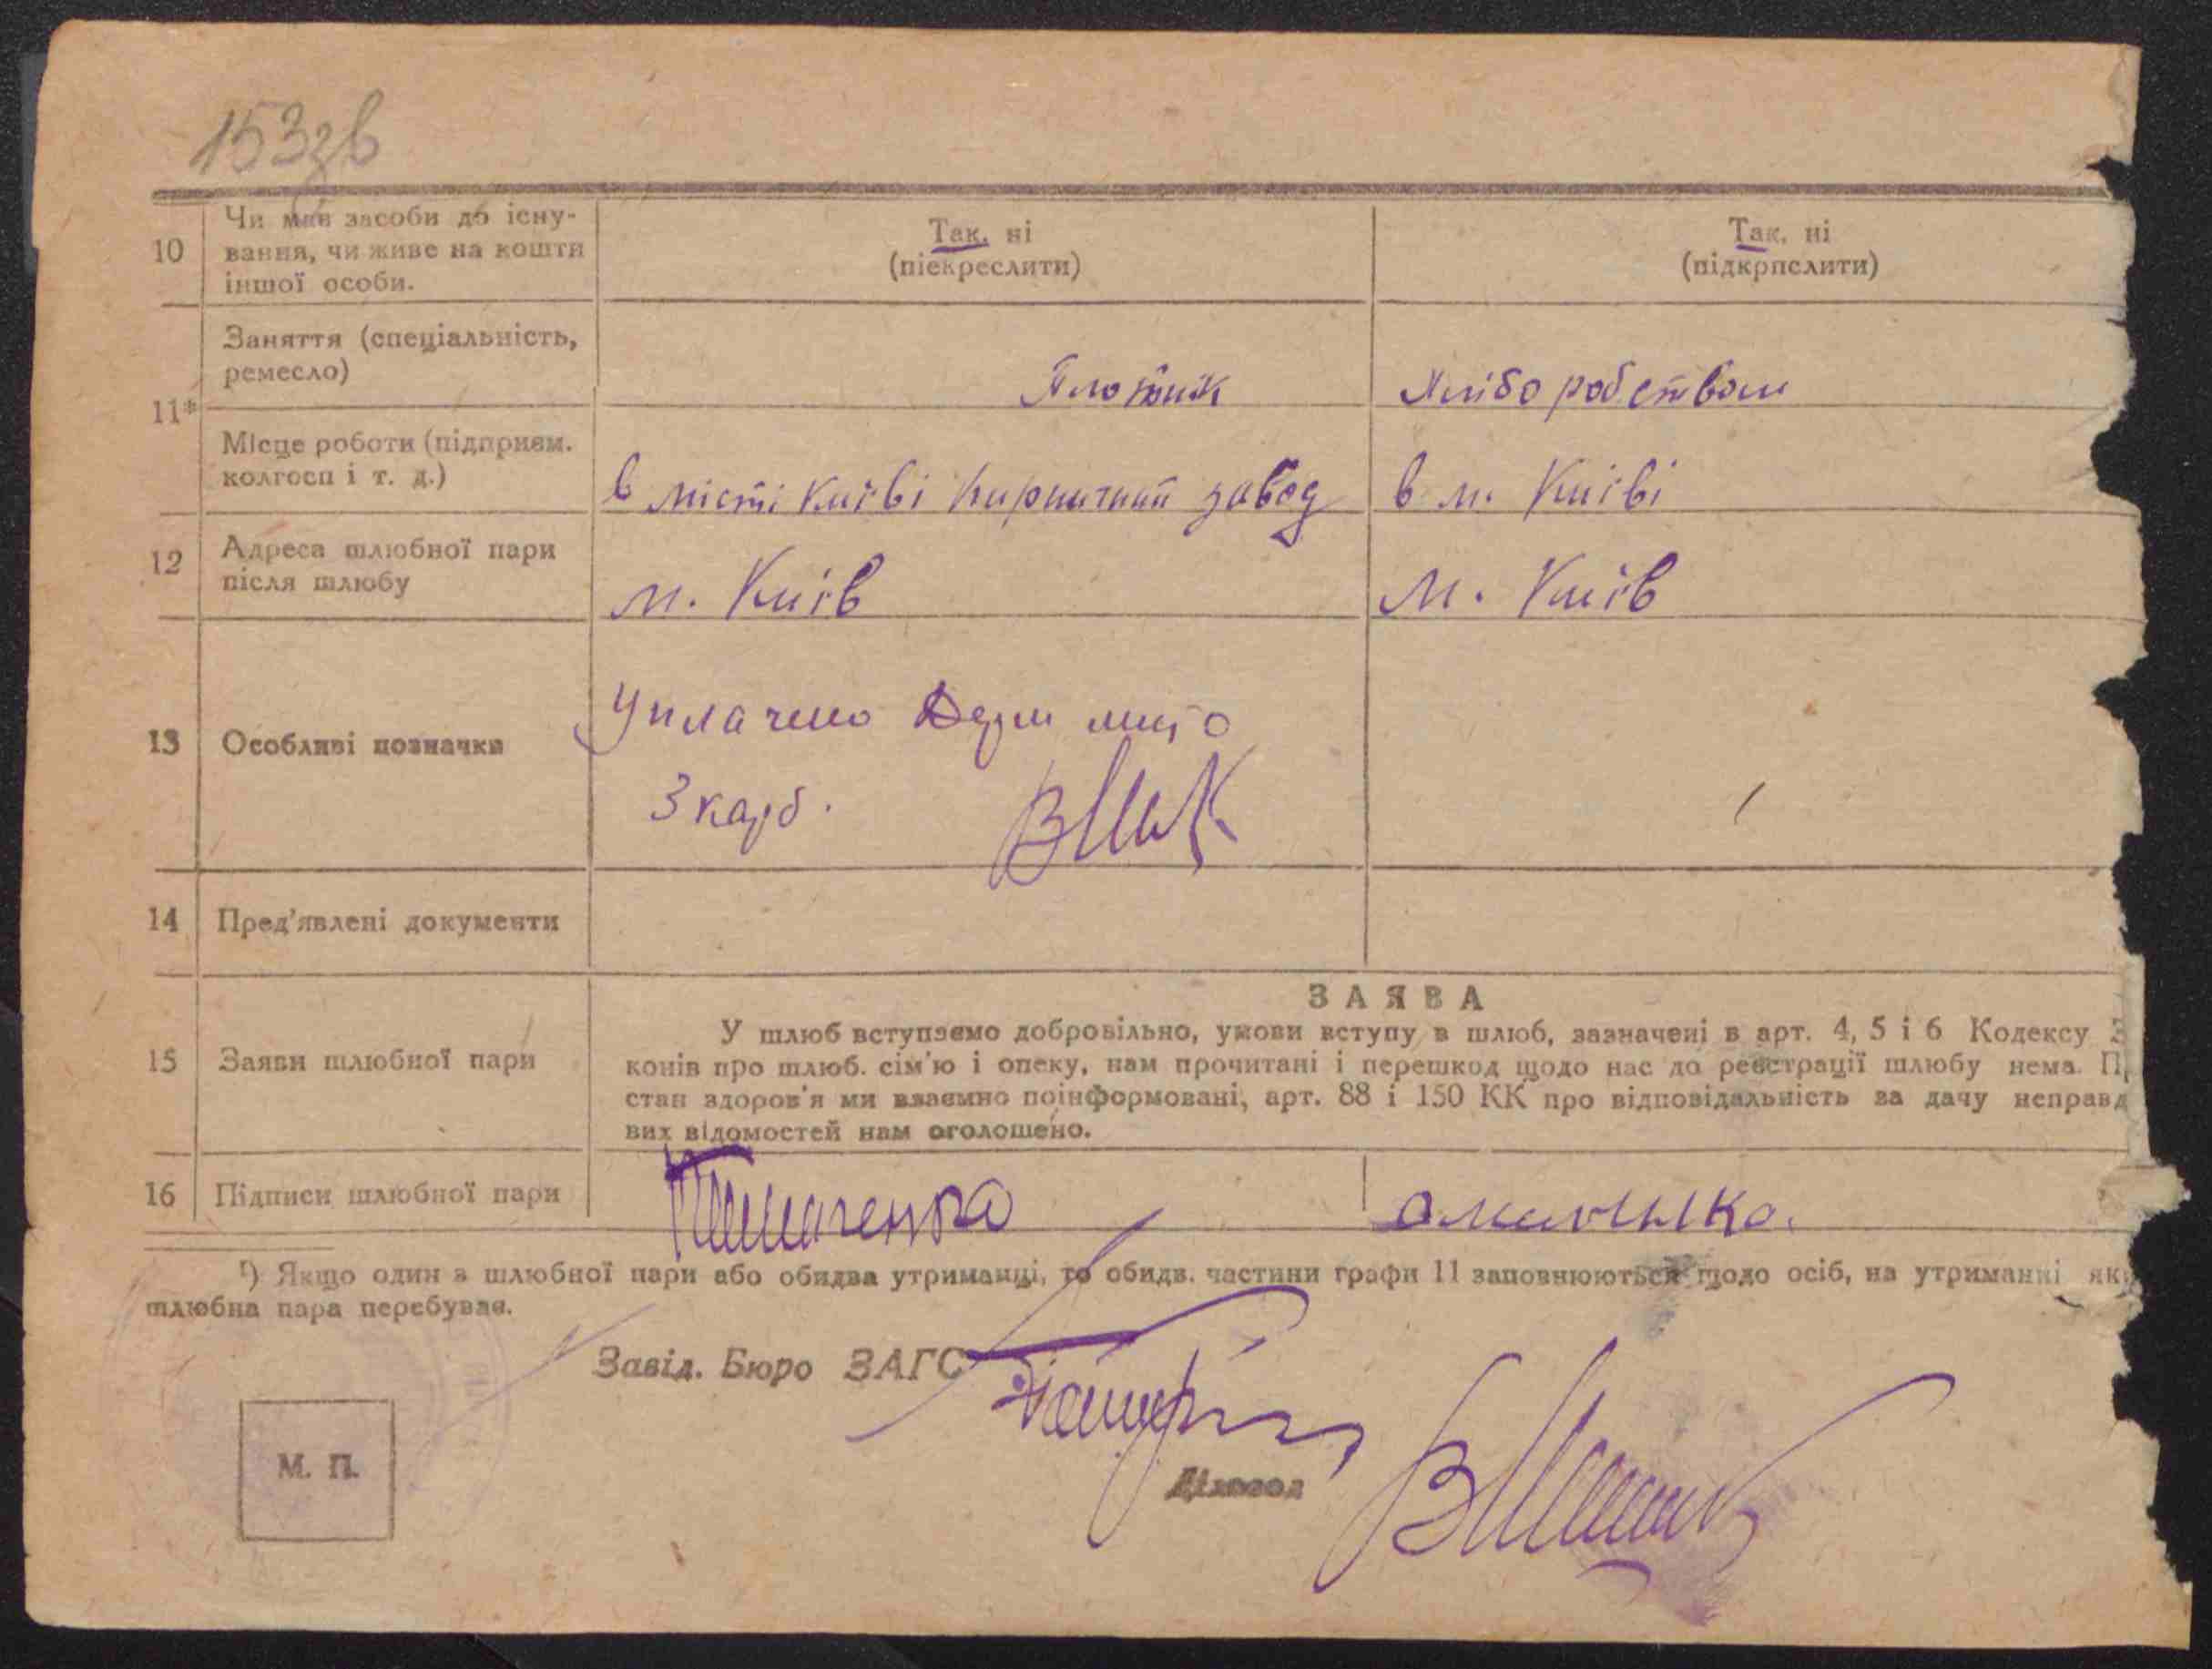 153зв
10 Чи має засоби до існу-
вання, чи живе на кошти
іншої особи.
Так, ні
(піекреслити)
Так, ні
(підкрпслити)
11*
Заняття (спеціальність,
ремесло)
Плотник
Хлібо робством
Місце роботи (підприєм.
колгосп і т. д.)
в місті Київі кирпичний завод
в м. Київі
12 Адреса шлюбної пари
після шлюбу
м. Київ
м. Київ
13 Особливі позначки
Уплачено Держ мито
3 карб.
14 Пред'явлені документи
15 Заяви шлюбної пари
ЗАЯВА
У шлюб вступаємо добровільно, умови вступу в шлюб, зазначені в арт. 4, 5 і 6 Кодексу З
конів про шлюб. сім'ю і опеку, нам прочитані і перешкод щодо нас до реєстрації шлюбу нема. Пр
стан здоров'я ми взаємно поінформовані, арт. 88 і 150 КК про відповідальність за дачу неправд
вих відомостей нам оголошено.
16 Підписи шлюбної пари
¹) Якщо один з шлюбної пари або обидва утриманці, то обидв. частини графи 11 заповнюються щодо осіб, на утриманні яки
шлюбна пара перебуває.
Завід. Бюро ЗАГС
М. П.
Діловод